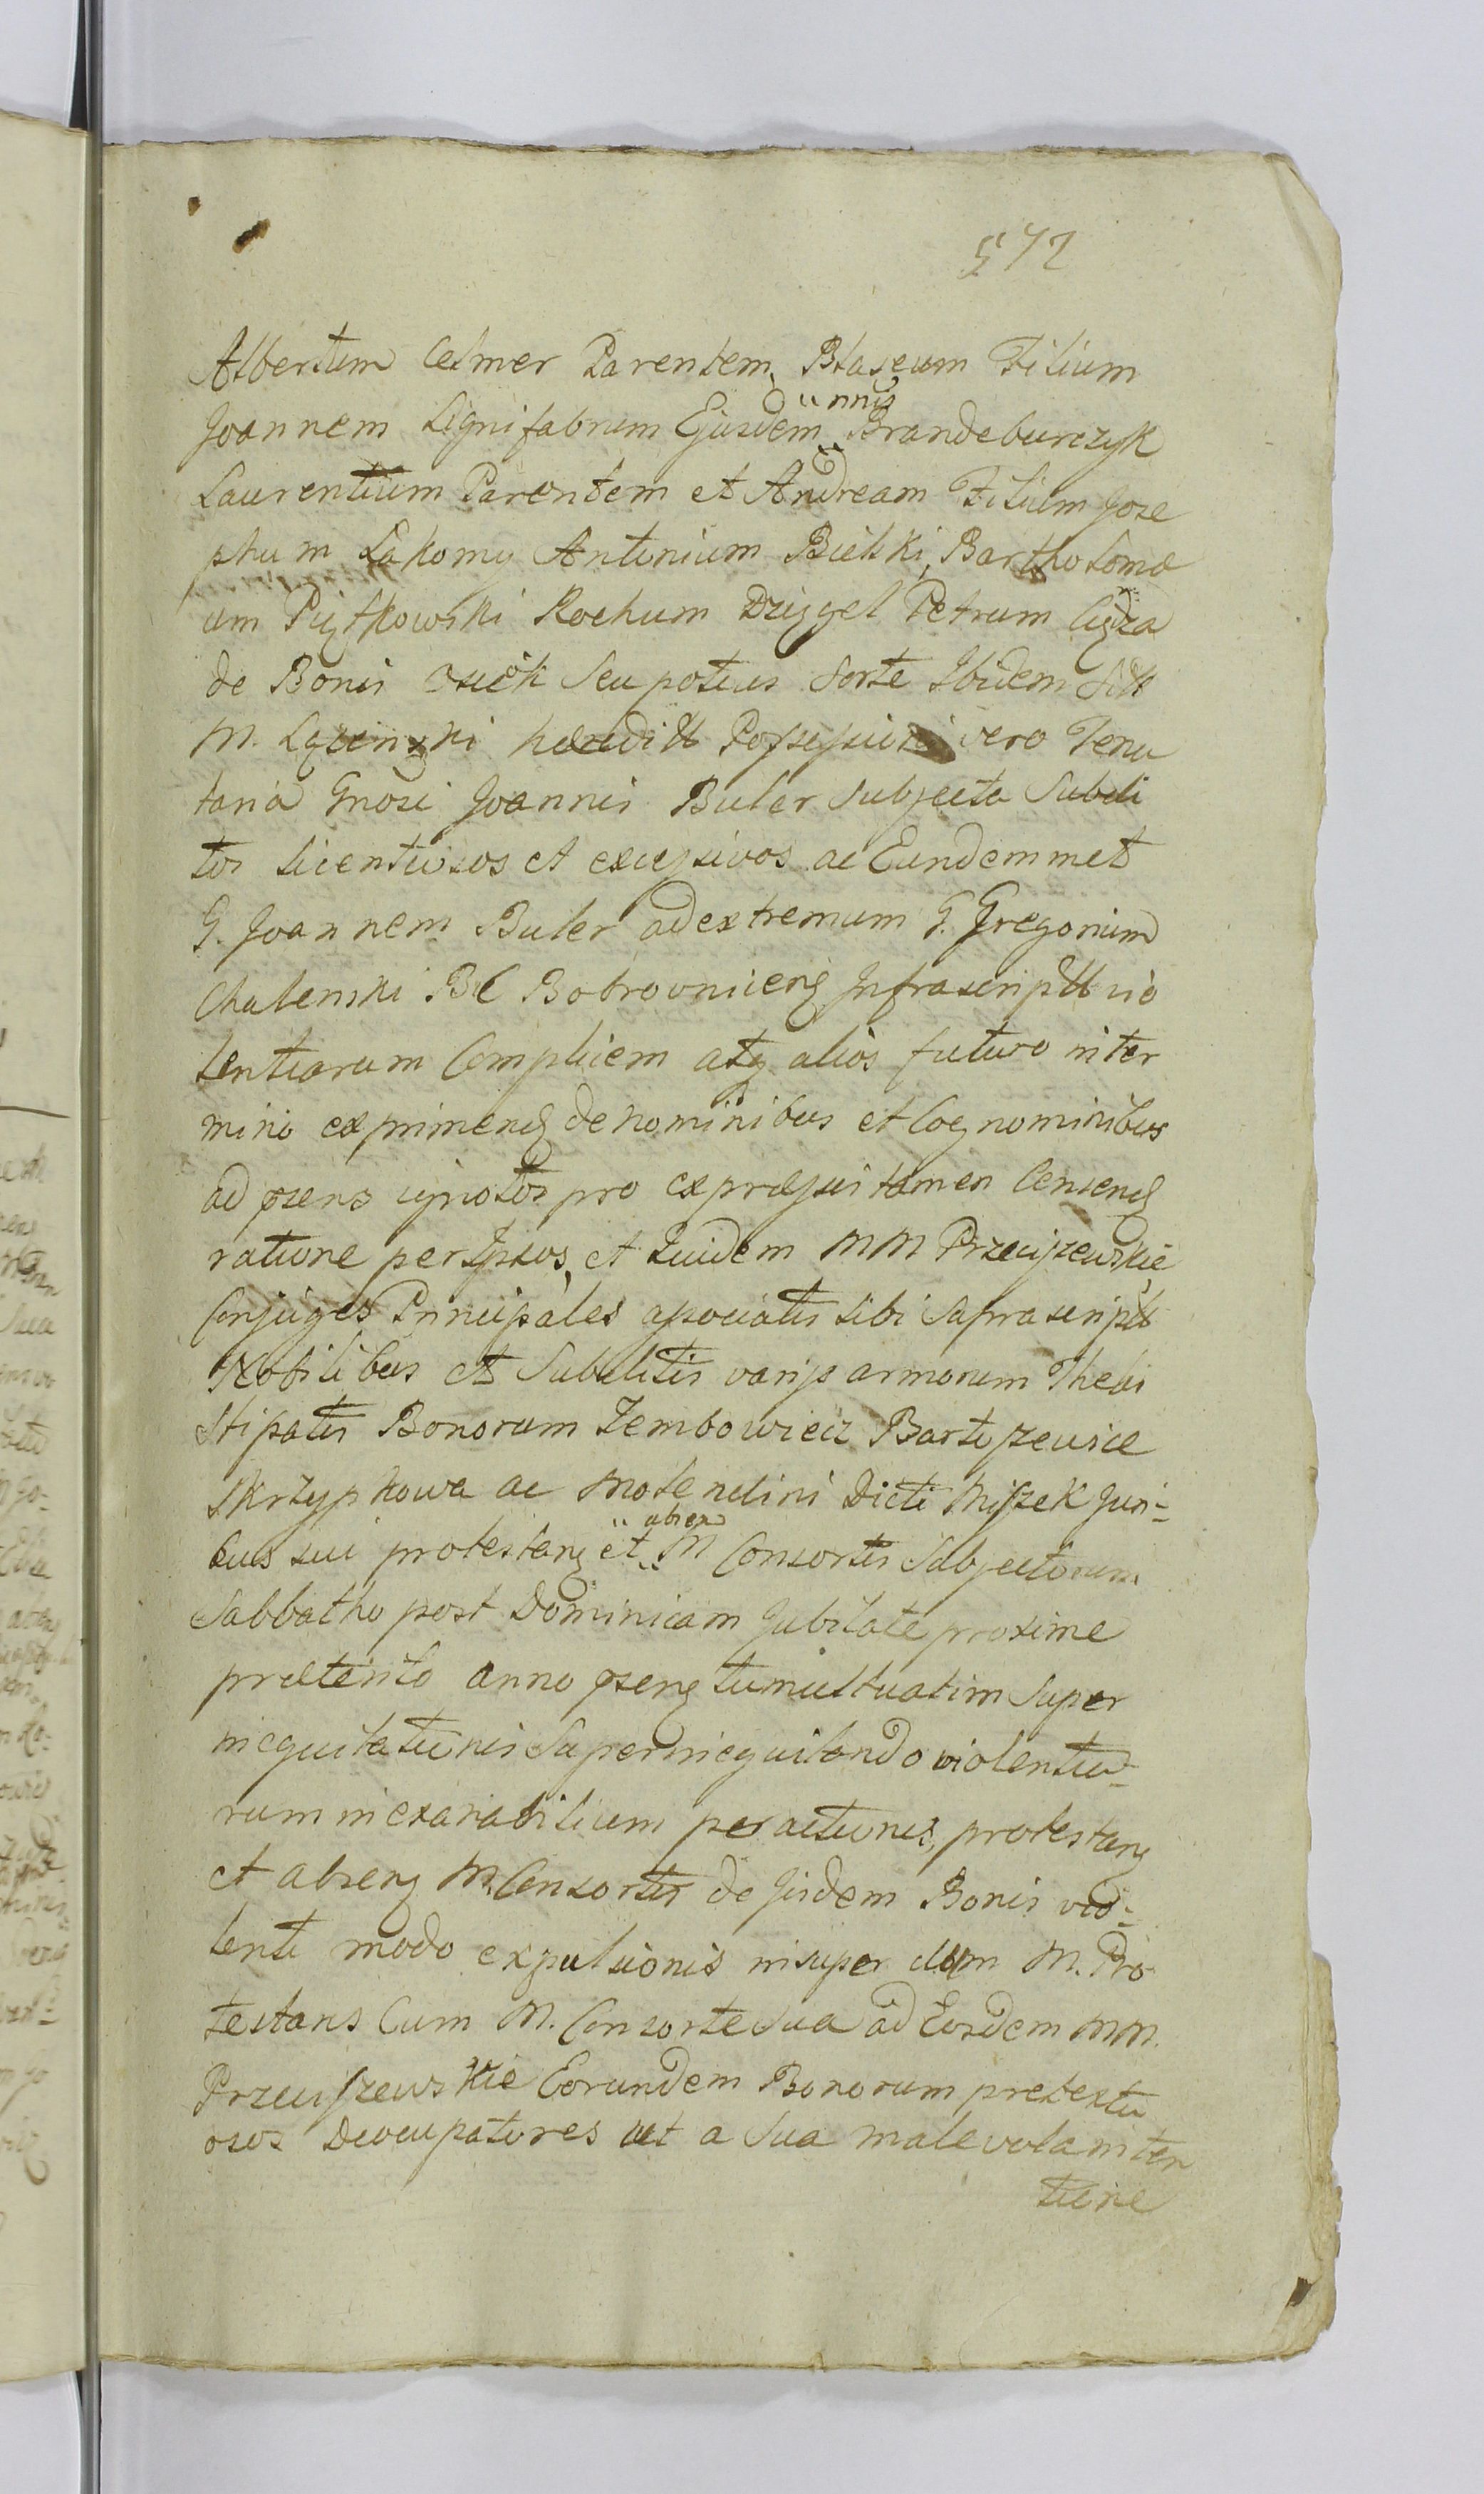 572
Albertum Celmer Parentem, Blaseum Filium
Joannem Lignifabrum Ejusdem nnis Brandeburczyk
Laurentium Parentem et Andream Filium Jose
phum Łakomy Antonium Bielski, Bartholomæ
um Piątkowski Rochum Dzięgel Petrum
de Bonis Osiek Seu potius Sorte Ibidem Sitt
M. hæreditt Possessioni vero Tenu
taria Gnosi Joannis Buler Subjecta Subdi
tos licentiosos et excessivos ac Eundemmet
G. Joannem Buler ad extremum G. Gregorium
Chalenski BC Bobrovniceng Infrascriptt vio
lentiarum Complicem atq alios futuro in ter
mino exprimend de nominibus et Cognominibus
ad psens ignotos pro expressis tamen Censend
ratione per Ipsos, et Quidem MM Przeciszewskie
Conjuges Principales associatis sibi Suprascriptt
Nobilibus et Subditis varijs armorum Thelis
Stipatis Bonorum Zembowiec Bartoszewice
Skrzypkowa ac Molendini Dicti Miszek Juri-
bus sui protestang et absen M Consortis Subjectorum
Sabbatho post Dominicam Jubilate proxime
præterito anno pseng tumultuatim Super
inequitationis Superinequitando violentia-
rum inexarabilium peractionis, protestang
et abseng M. Consortis de Jisdem Bonis vio-
lenti modo expulsionis insuper dum M. Pro
testans Cum M. Consorte Sua ad Eosdem MM.
Przeciszewskie Eorundem Bonorum pretextu
osos Deoccupatores ut a Sua malevola inten
tione